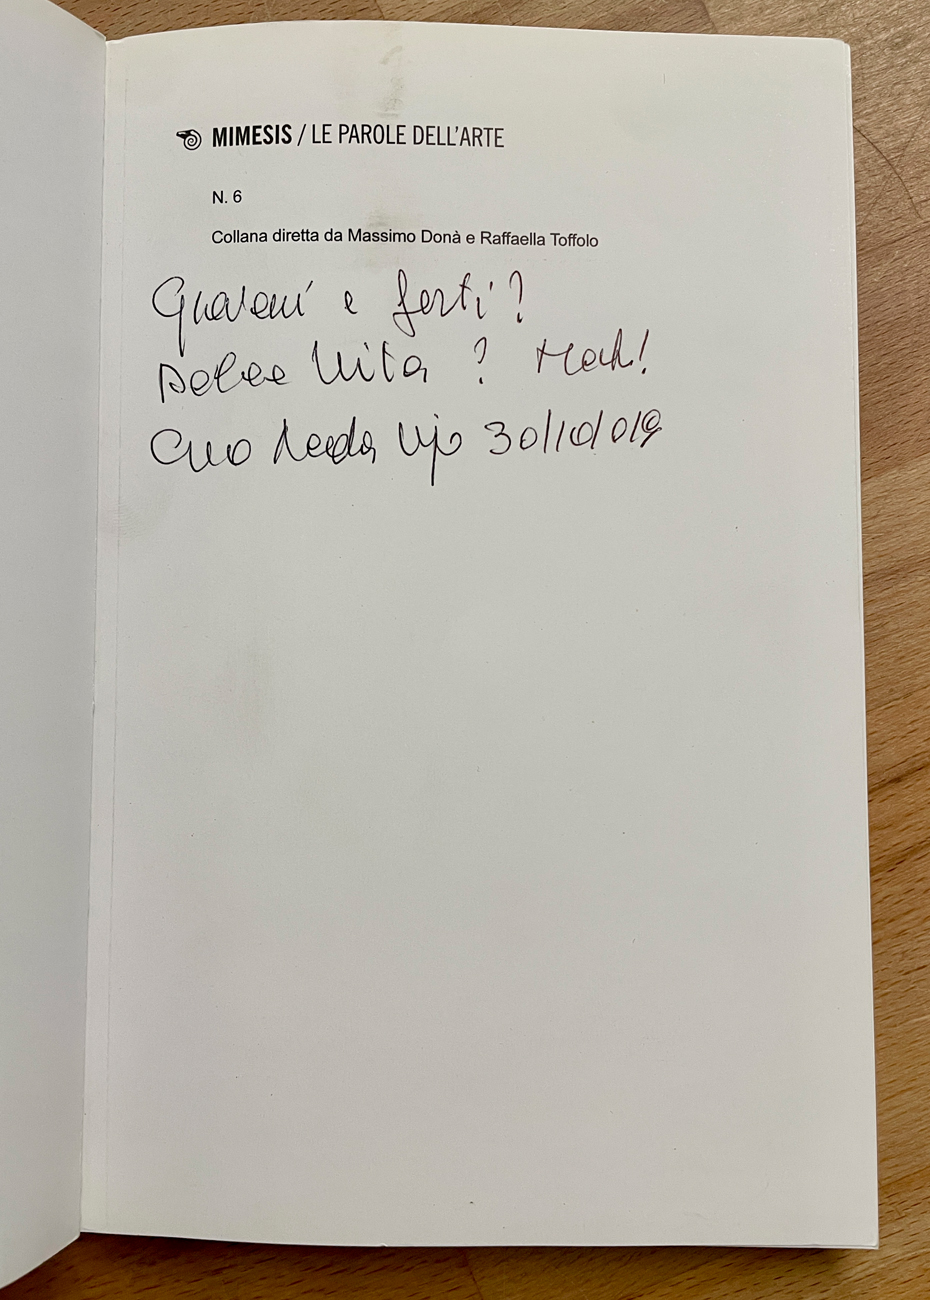 MIMESIS / LE PAROLE DELL'ARTE
N. 6
Collana diretta da Massimo Donà e Raffaella Toffolo
e forti?
Dolce Vita ? Mah!
30/10/019